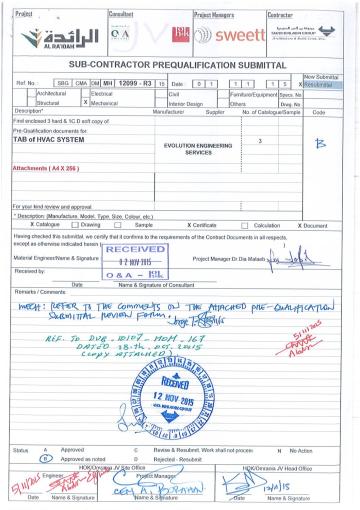 Project
Consultant
Project Managers
Contractor
الرائدة
AL RA'IDAH
O&A
sweett
SAUDI BINLADIN GROUP
SUB-CONTRACTOR PREQUALIFICATION SUBMITTAL
Ref No. : SBG CMA OM MH 12099 - R3 15 Date : 0 1 1 1 1 5
New Submittal
X Resubmittal
Architectural Electrical Civil Furniture/Equipment Specs. No.
Structural X Mechanical Interior Design Others Drwg. No
Description* Manufacturer Supplier No. of Catalogue/Sample Code
Find enclosed 3 hard & 1C.D soft copy of
Pre-Qualification documents for
TAB of HVAC SYSTEM
EVOLUTION ENGINEERING
SERVICES
3
B
Attachments ( A4 X 256 )
For your kind review and approval
* Description: (Manufacture, Model, Type, Size, Colour, etc.)
X Catalogue Drawing Sample X Certificate Calculation X Document
Having checked this submittal, we certify that it confirms to the requirements of the Contract Documents in all respects,
except as otherwise indicated herein
RECEIVED
02 NOV 2015
O & A -
Material Engineer/Name & Signature
Project Manager Dr.Dia Malaeb
Received by:
Date Name & Signature of Consultant
Remarks / Comments:
MECH: REFER TO THE COMMENTS ON THE ATTACHED PRE-QUALIFICATION
SUBMITTAL REVIEW FORM.
REF. TO DVB-10107-MOM-167
DATED 28th. OCT. 2015
(COPY ATTACHED)
5/11/2015
RECEIVED
12 NOV 2015
Status A Approved C Revise & Resubmit, Work shall not proceed N No Action
B Approved as noted D Rejected - Resubmit
HOK/Omrania JV Site Office
HOK/Omrania JV Head Office
Engineer
Project Manager
5/11/2015
12/11/15
Date Name & Signature Name & Signature Date Name & Signature